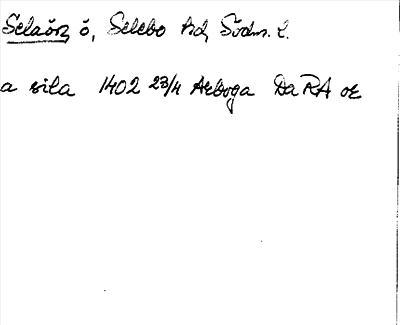 Selaön, ö, Selebo hd, Södm. l.
a sila 1402 23/4 Arboga Da RA or